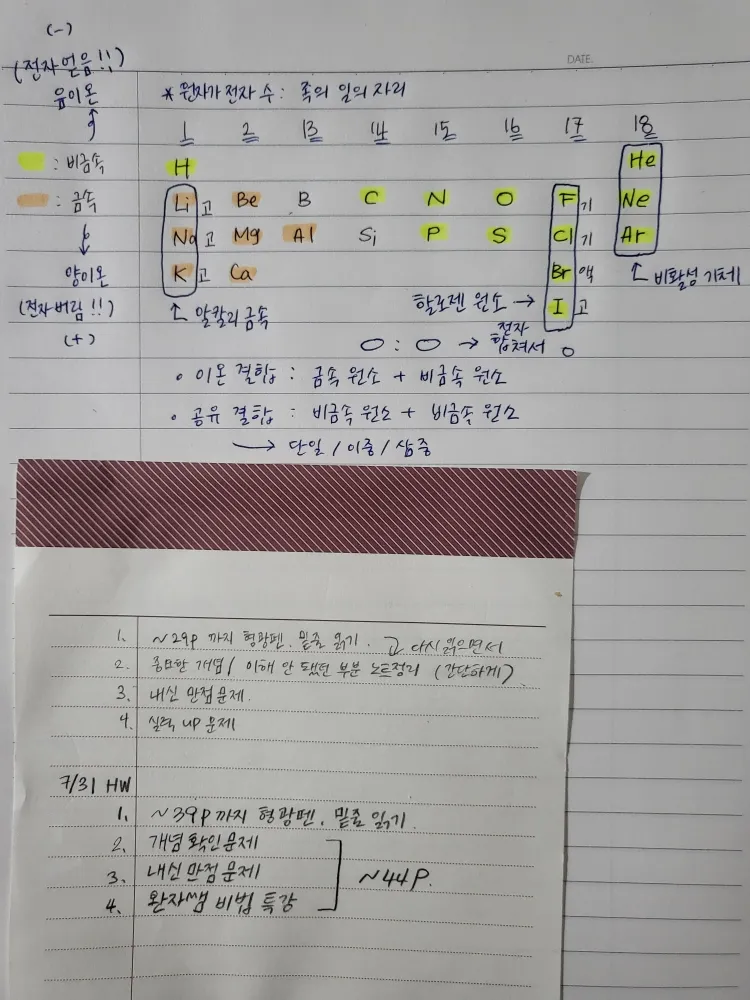 (-)
(전자얻음!!)
음이온
DATE.
* 원자가 전자 수 : 족의 일의 자리
1 2 13 14 15 16 17 18
: 비금속
H He
: 금속
Li 고 Be B C N O F 기 Ne
Na 고 Mg Al Si P S Cl 기 Ar
양이온
K 고 Ca Br 액
비활성 기체
(전자버림!!)
알칼리 금속
할로젠 원소 → I 고
(+)
○ : ○ → 전자 합쳐서 ○
• 이온 결합 : 금속 원소 + 비금속 원소
• 공유 결합 : 비금속 원소 + 비금속 원소
→ 단일 / 이중 / 삼중
1. ~29p 까지 형광펜, 밑줄 읽기. 고 다시 읽으면서
2. 중요한 개념 / 이해 안 됐던 부분 노트정리 (간단하게)
3. 내신 만점 문제.
4. 실력 up 문제
7/31 HW
1. ~39p까지 형광펜, 밑줄 읽기.
2. 개념 확인 문제
3. 내신 만점 문제
~44p.
4. 완자쌤 비법 특강